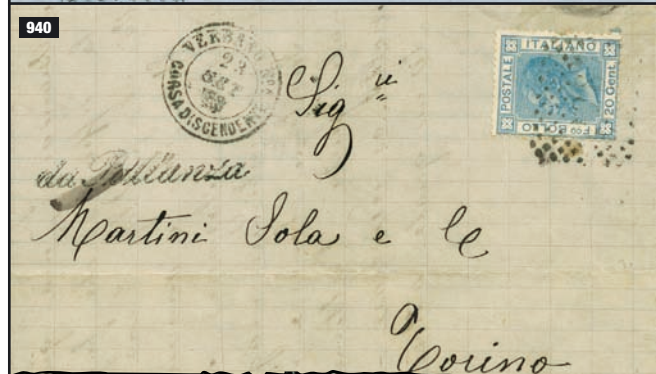 940
VERBANO Nº1
23
SET
CORSA DISCENDENTE
ITALIANO
POSTALE
20 Cent.
Fco BOLLO
Sig ri
da Pallanza
Martini Sola e Ce
Torino